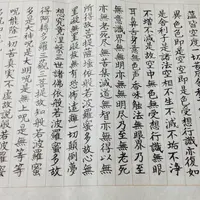 異色色即是空空即是色受想行識亦復如
是舍利子是諸法空相不生不滅不垢不淨
不增不減是故空中無色無受想行識無眼
耳鼻舌身意無色聲香味觸法無眼界乃至
無意識界無無明亦無無明盡乃至無老死
亦無老死盡無苦集滅道無智亦無得以無
所得故菩提薩埵依般若波羅蜜多故心無
罣礙無罣礙故無有恐怖遠離一切顛倒夢
想究竟涅槃三世諸佛依般若波羅蜜多故
得阿耨多羅三藐三菩提故知般若波羅蜜
多是大神呪是大明呪是無上呪是無等等
呪能除一切苦真實不虛故說般若波羅蜜